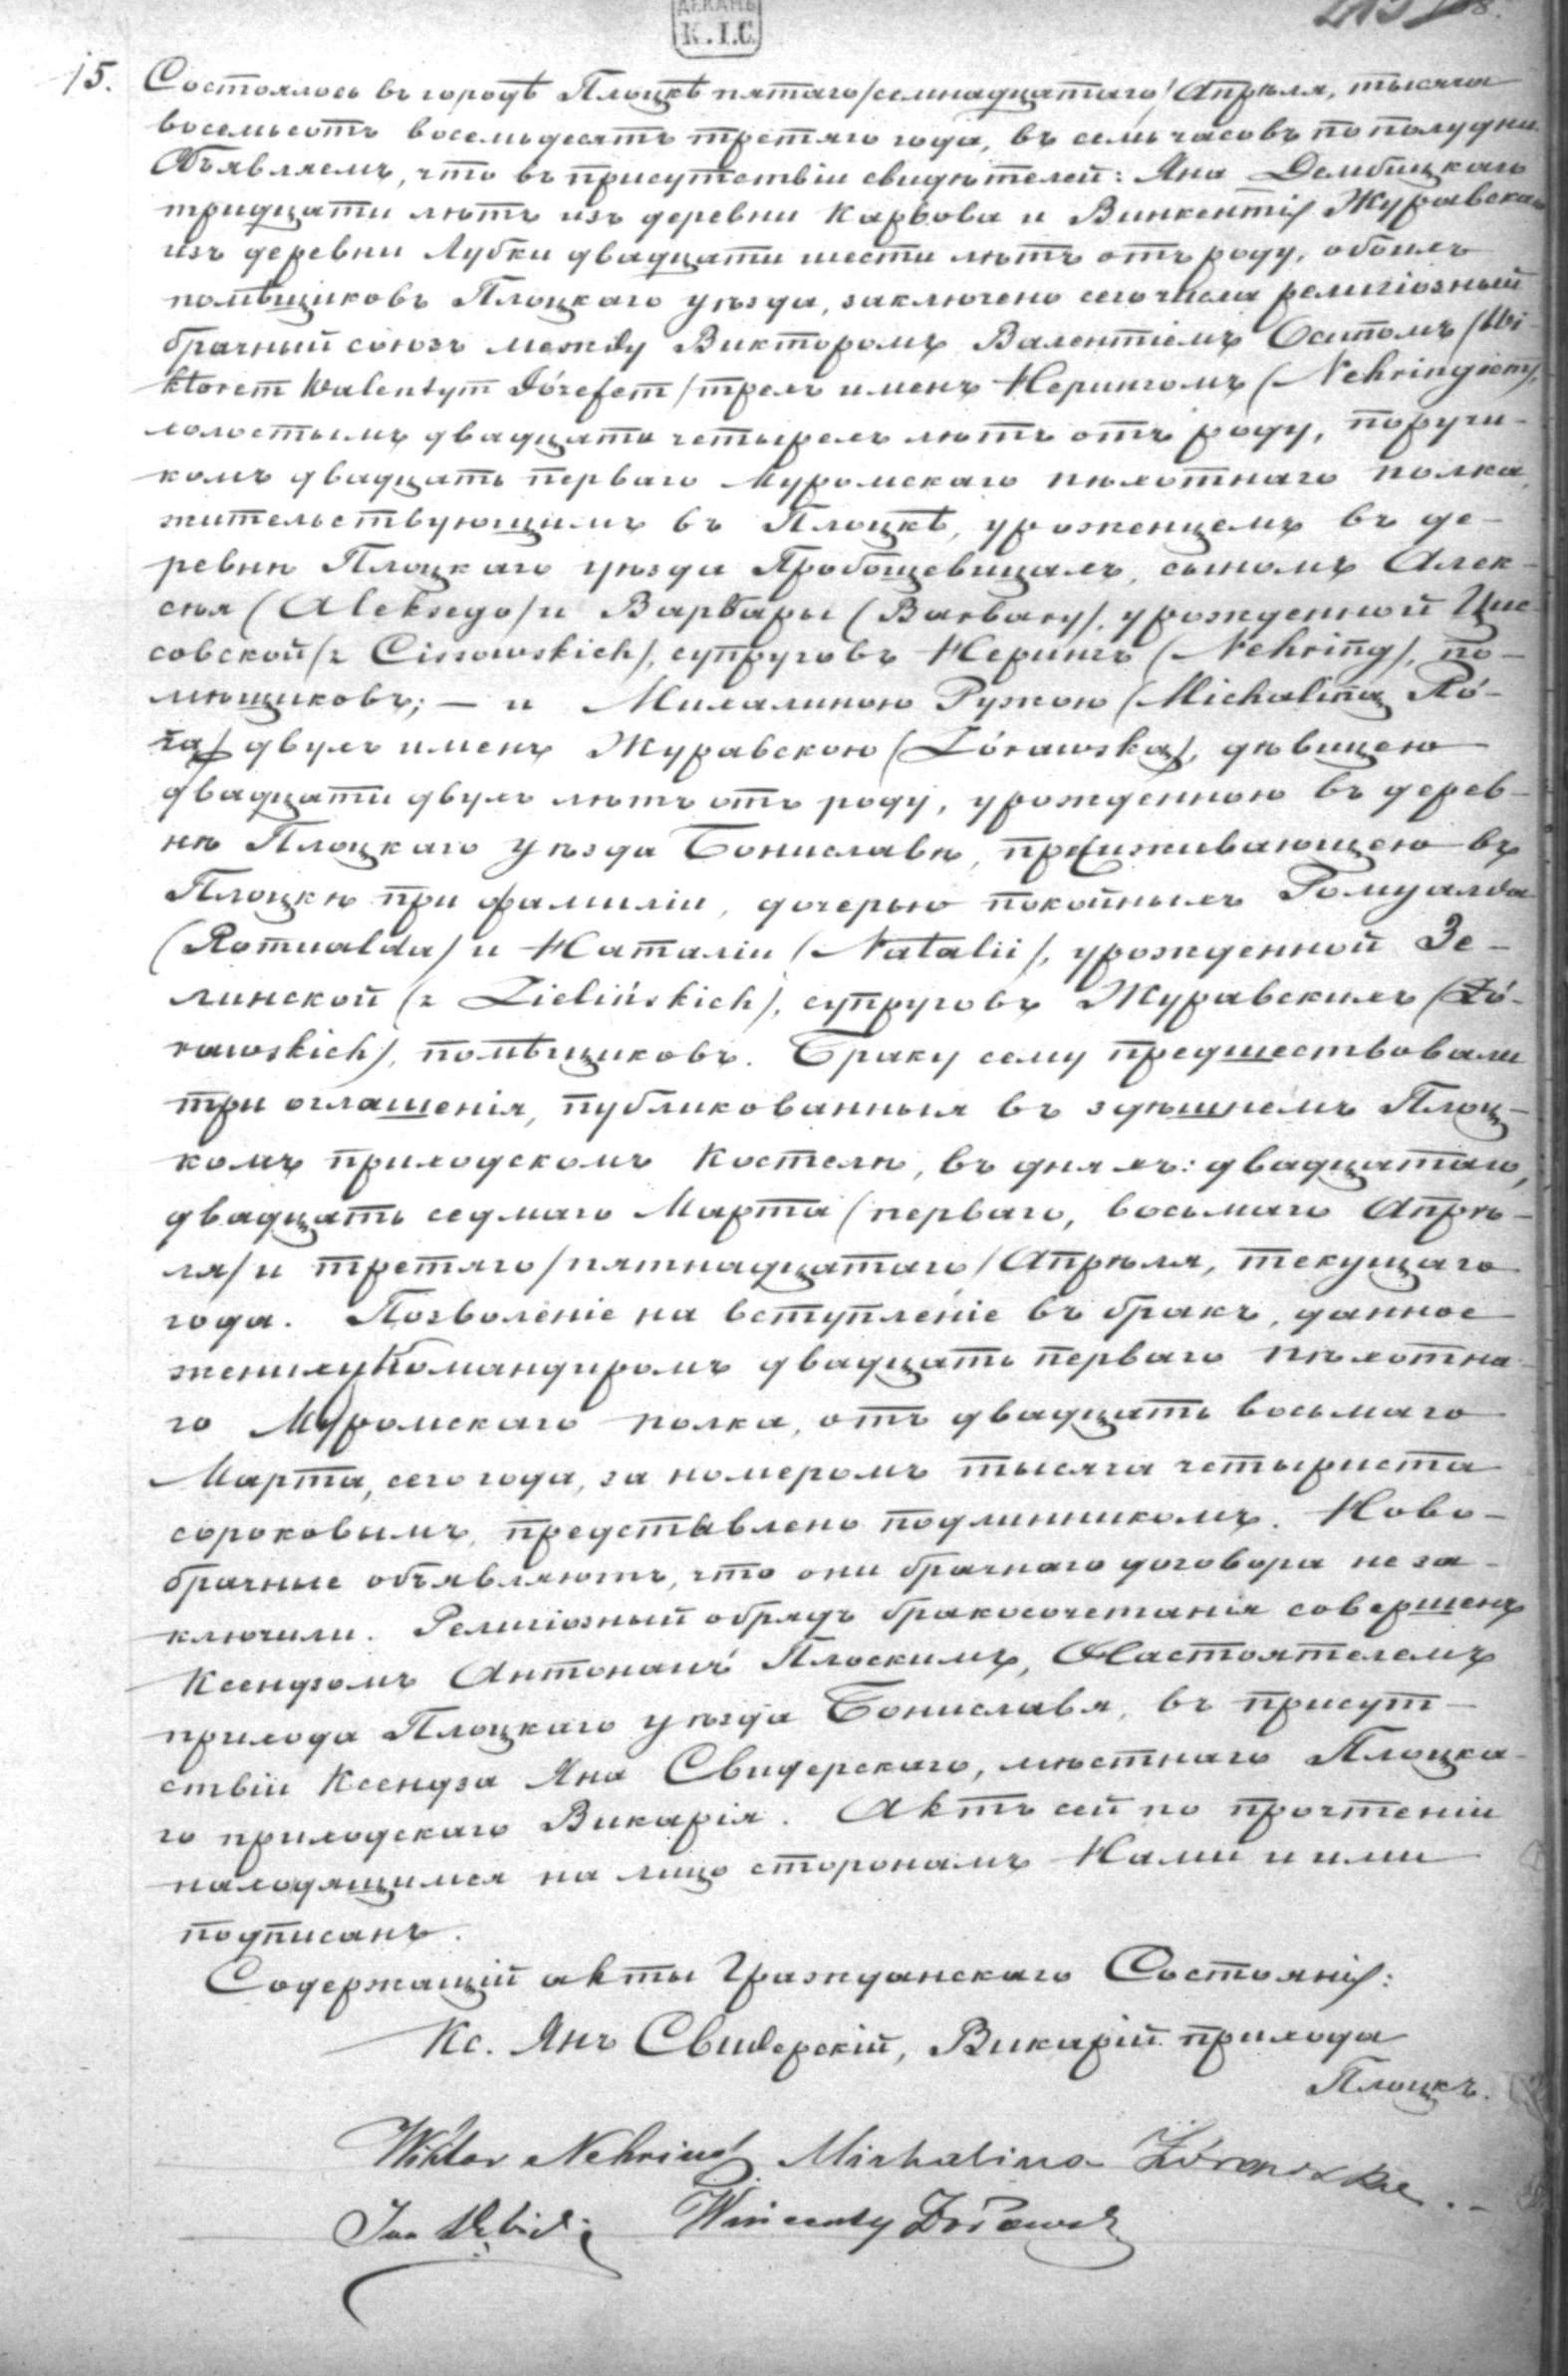 ДЕКАНЪ
К.І.С.
15. Состоялось въ городѣ Плоцкѣ пятаго /семнадцатаго/ Апрѣля, тысяча
восемьсотъ восемьдесятъ третяго года, въ семь часовъ по полудни.
Объявляемъ, что въ присутствіи свидѣтелей: Яна Дембицкаго
тридцати лѣтъ изъ деревни Карвова и Винкентія Журавскаго
изъ деревни Лубки двадцати шести лѣтъ отъ роду, обоихъ
помѣщиковъ Плоцкаго уѣзда, заключено сего числа религіозный
брачный союзъ между Викторомъ Валентіемъ Осипомъ /Wi-
ktorem Walentym Józefem/ трехъ именъ Нерингомъ (Nehringiem),
холостымъ двадцати четырехъ лѣтъ отъ роду, поручи-
комъ двадцать перваго Муромскаго пѣхотнаго полка,
жительствующимъ въ Плоцкѣ, уроженцемъ въ де-
ревнѣ Плоцкаго уѣзда Пробощевицахъ, сыномъ Алек-
сѣя (Aleksego/ и Варвары (Barbary/, урожденной Цис-
совской /z Cissowskich/, супруговъ Нерингъ (Nehring), по-
мѣщиковъ; — и Михалиною Ружою (Michaliną Ró-
żą/ двухъ именъ Журавскою (Żórawską), дѣвицею
двадцати двухъ лѣтъ отъ роду, урожденною въ дерев-
нѣ Плоцкаго уѣзда Бониславѣ, проживающею въ
Плоцкѣ при фамиліи, дочерью покойныхъ Ромуальда
(Romualda/ и Наталіи (Natalii/, урожденной Зе-
линской (z Zielińskich/, супруговъ Журавскихъ (Żó-
rawskich), помѣщиковъ. Браку сему предшествовали
три оглашенія, публикованныя въ здѣшнемъ Плоц-
комъ приходскомъ Костелѣ, въ дняхъ: двадцатаго,
двадцать седмаго Марта (перваго, восьмаго Апрѣ-
ля/ и третяго /пятнадцатаго/ Апрѣля, текущаго
года. Позволеніе на вступленіе въ бракъ, данное
жениху Командиромъ двадцать перваго пѣхотна-
го Муромскаго полка, отъ двадцать восьмаго
Марта, сего года, за номеромъ тысяча четыриста
сороковымъ, представлено подлинникомъ. Ново-
брачные объявляютъ, что они брачнаго договора не за-
ключили. Религіозный обрядъ бракосочетанія совершенъ
Ксендзомъ Плоскимъ, Настоятелемъ
прихода Плоцкаго уѣзда Бониславя, въ присут-
ствіи Ксендза Яна Свидерскаго, мѣстнаго Плоцка-
го приходскаго Викарія. Актъ сей по прочтеніи
находящимся на лицо сторонамъ Нами и ими
подписанъ.
Содержащій акты Гражданскаго Состоянія:
Кс. Янъ Свидерскій, Викарій прихода
Плоцкъ.
Wiktor Nehring Michalina Żórawska
Jan Dębicki Wincenty Żórawski